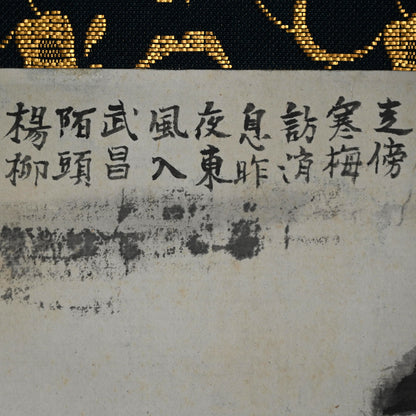 走傍
寒梅
訪消
息昨
夜東
風入
武昌
陌頭
楊柳